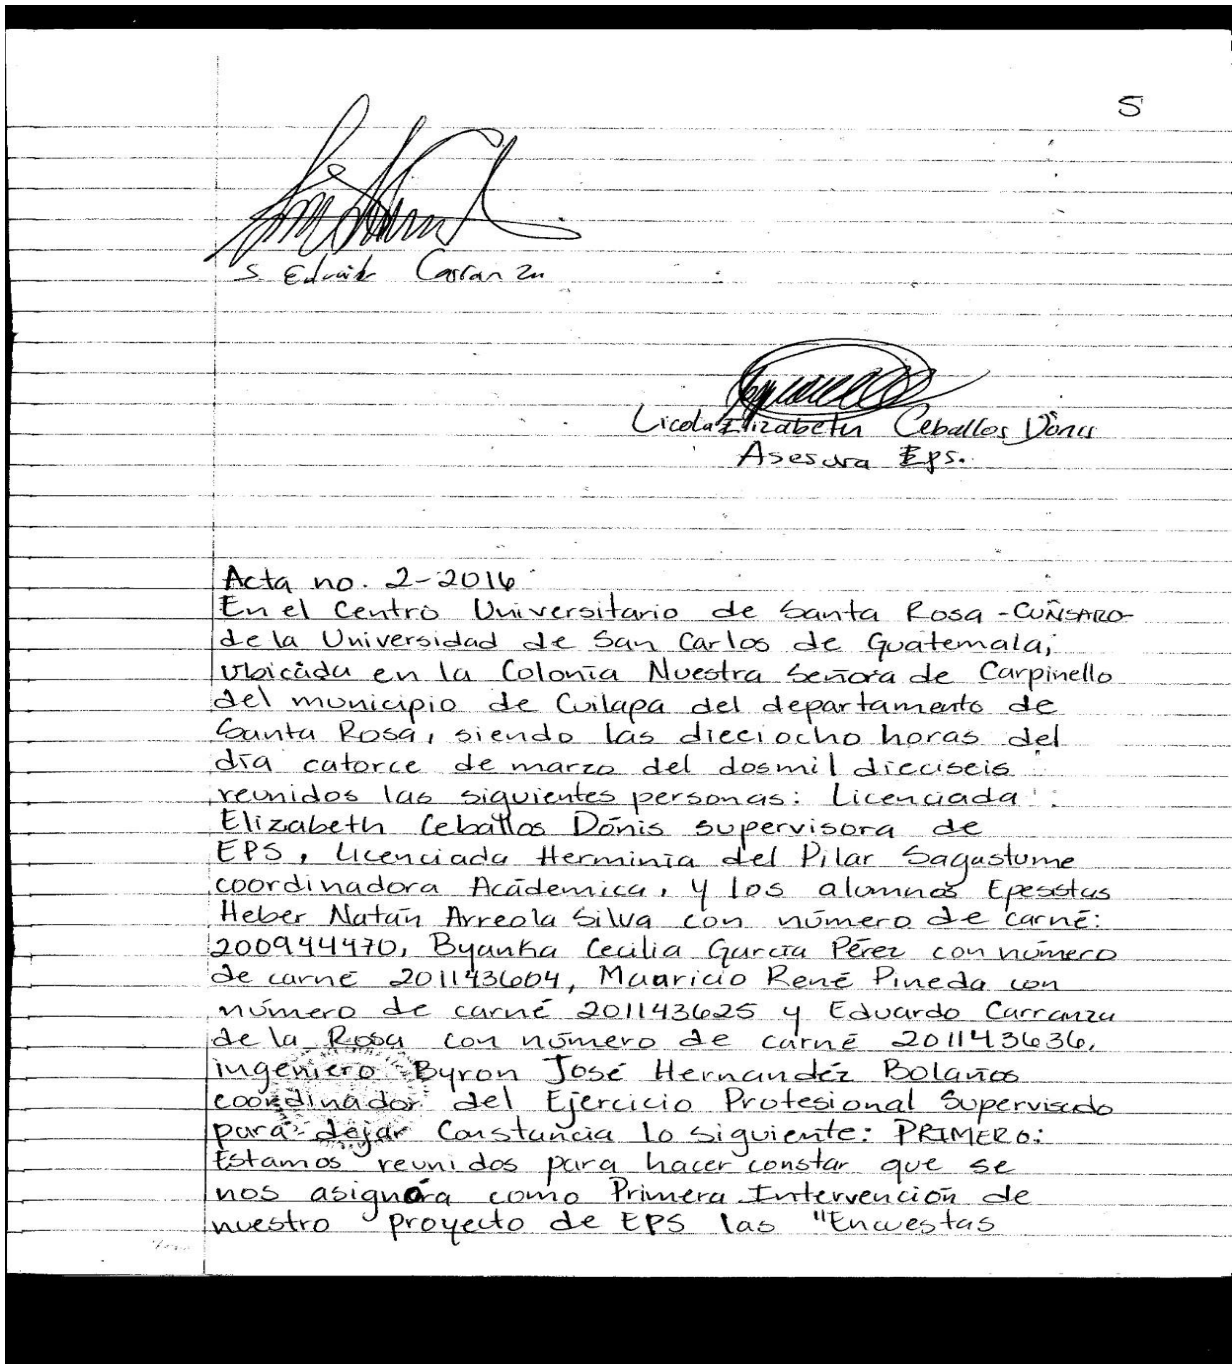 5
S. Eduardo Carranza
Licda Elizabeth Ceballos Dónis
Asesora Eps.
Acta no. 2-2016
En el Centro Universitario de Santa Rosa -CUNSARO-
de la Universidad de San Carlos de Guatemala,
ubicada en la Colonia Nuestra Señora de Carpinello
del municipio de Cuilapa del departamento de
Santa Rosa, siendo las dieciocho horas del
día catorce de marzo del dosmil dieciseis
reunidos las siguientes personas: Licenciada
Elizabeth Ceballos Dónis supervisora de
EPS, Licenciada Herminia del Pilar Sagastume
coordinadora Académica, y los alumnos Epesistas
Heber Natán Arreola Silva con número de carné:
200944470, Byanka Cecilia García Pérez con número
de carné 201143604, Mauricio René Pineda con
número de carné 201143625 y Eduardo Carranza
de la Rosa con número de carné 201143636,
ingeniero Byron José Hernandéz Bolaños
coordinador del Ejercicio Profesional Supervisado
para dejar Constancia lo siguiente: PRIMERO:
Estamos reunidos para hacer constar que se
nos asignara como Primera Intervención de
nuestro proyecto de EPS las "Encuestas